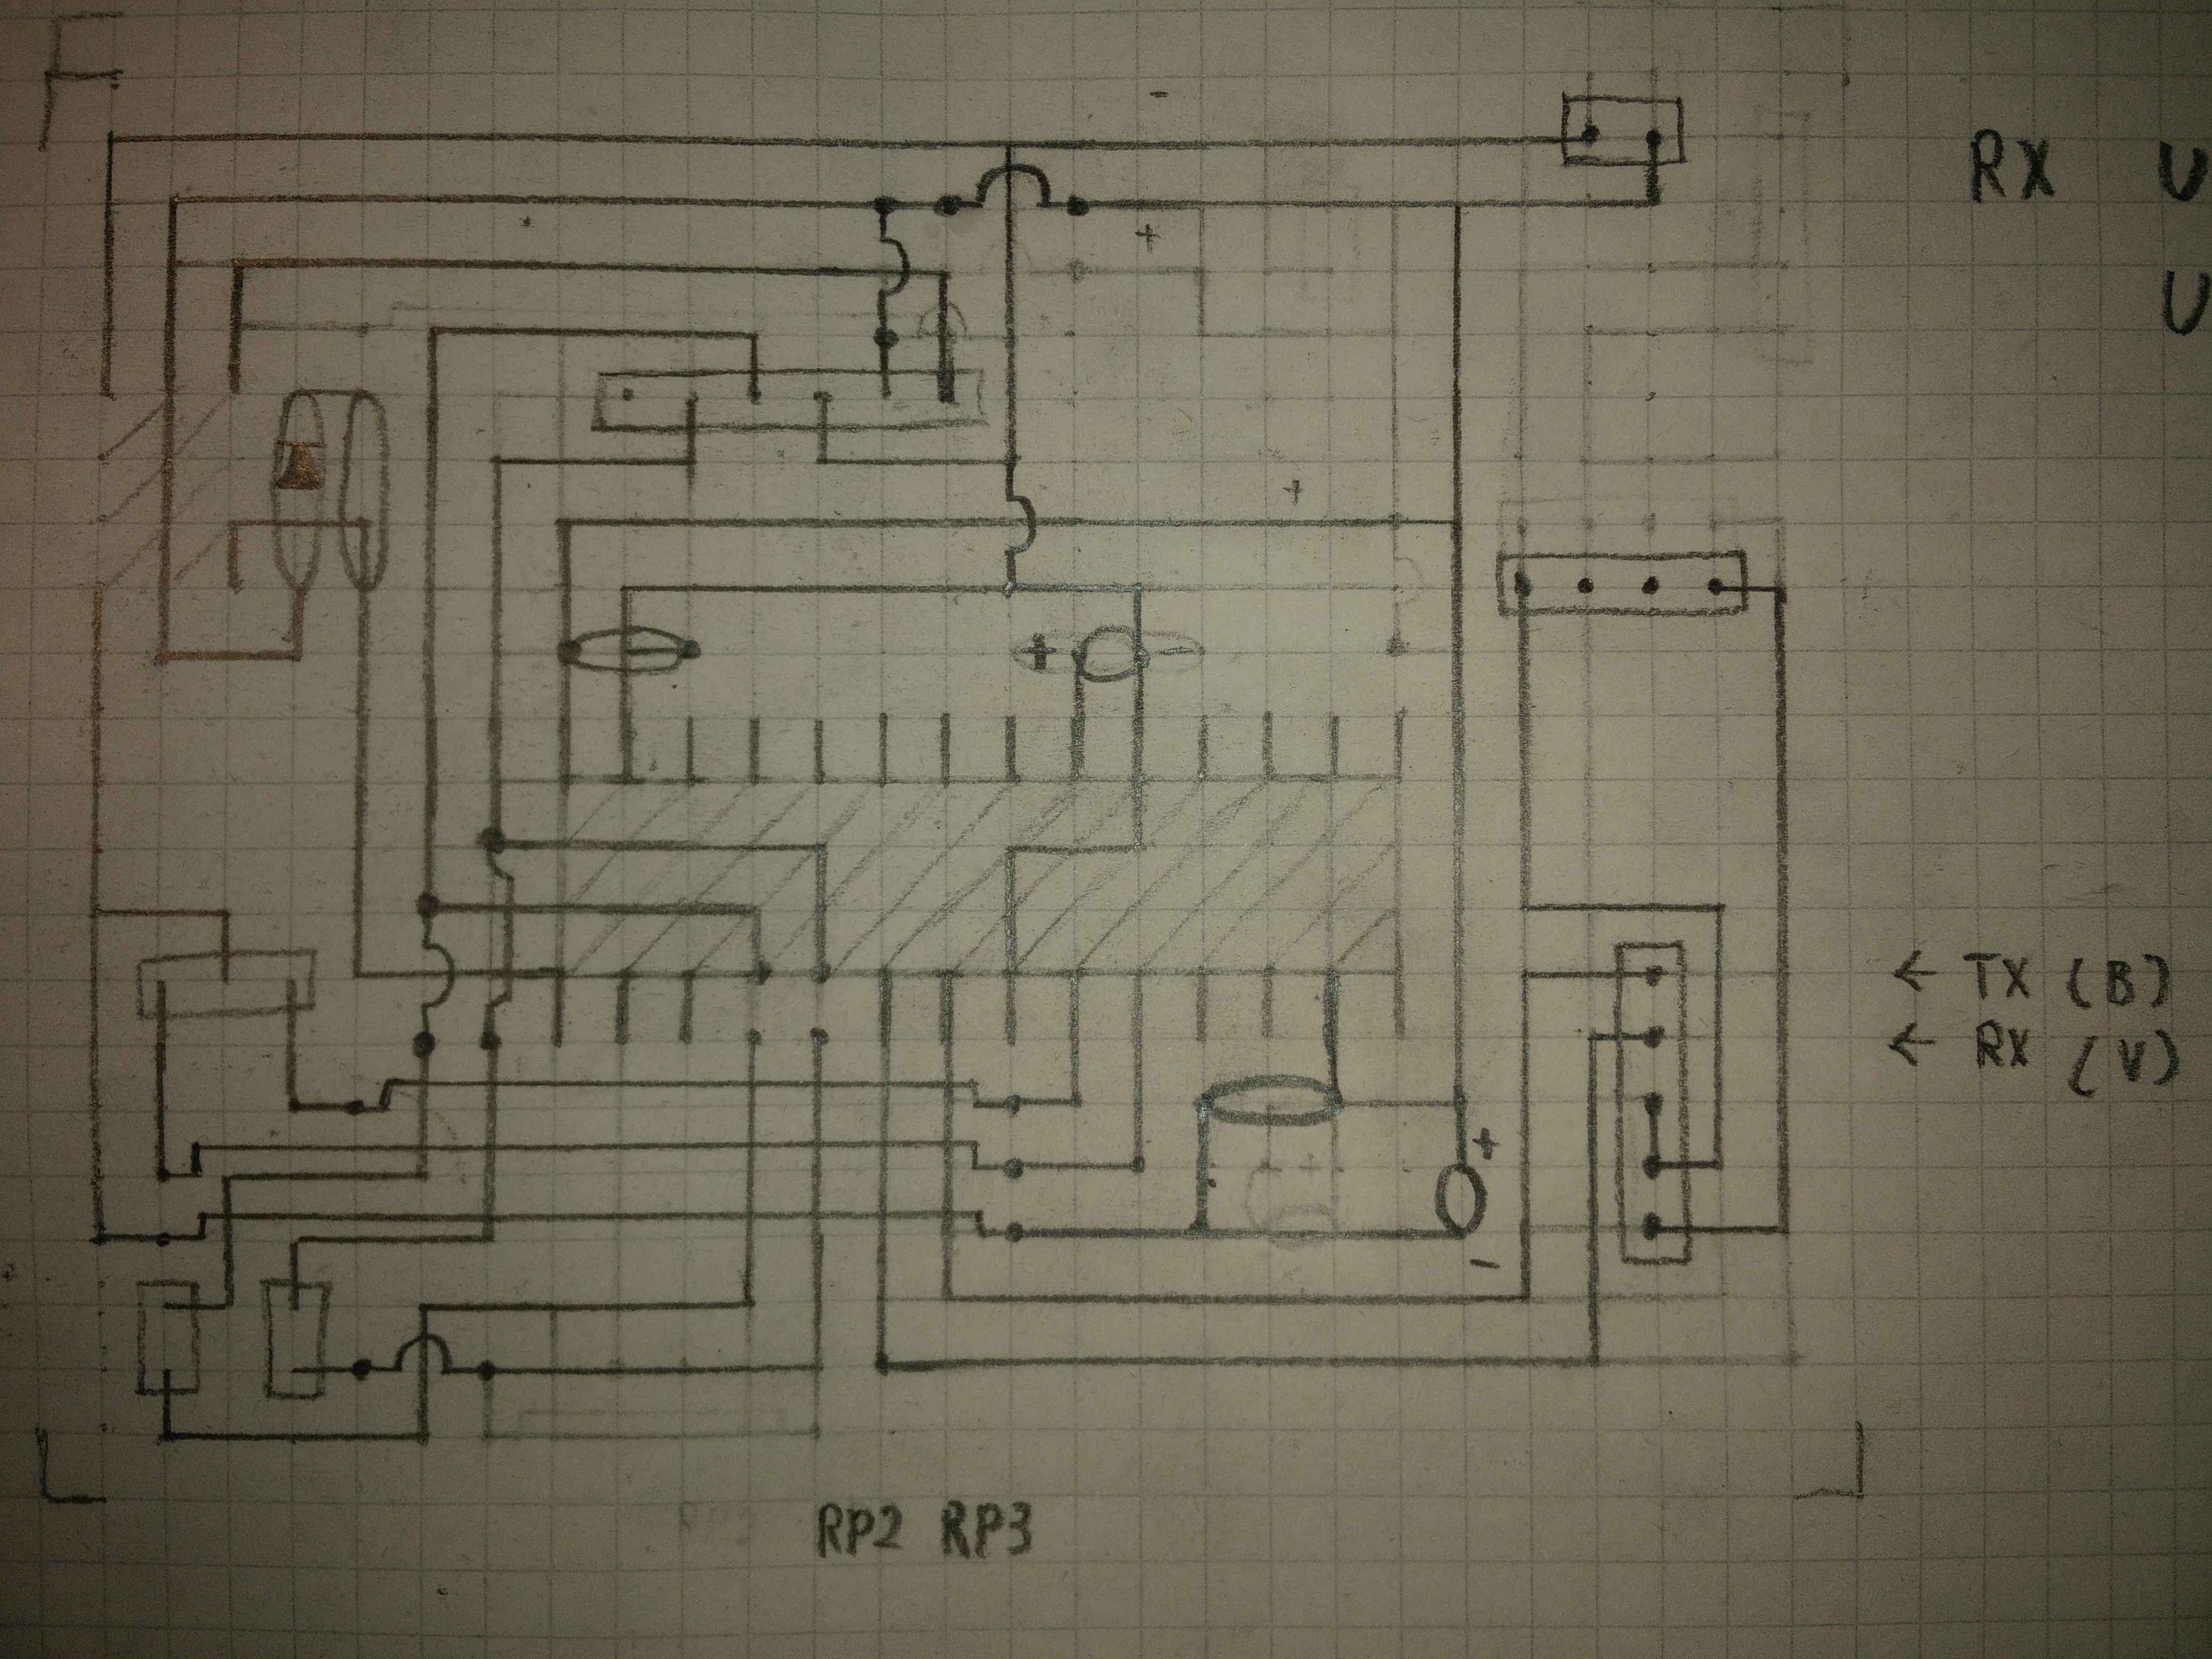 -
RX U
+
U
+
+ -
← TX (B)
← RX (V)
+
-
RP2 RP3